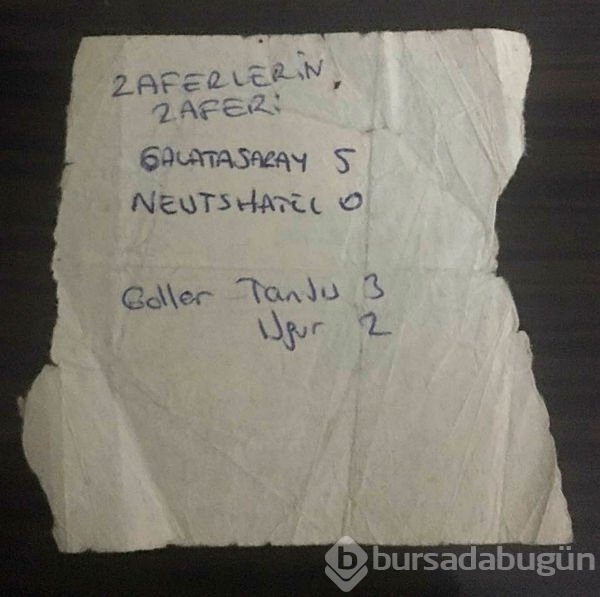 ZAFERLERİN
ZAFERİ
GALATASARAY 5
NEUTSHATEL 0
Goller Tanju 3
Uğur 2
bursadabugün